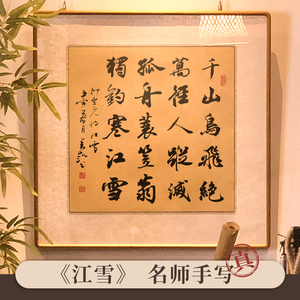 千山鳥飛絶
萬徑人蹤滅
孤舟蓑笠翁
獨釣寒江雪
柳宗元詩江雪
《江雪》 名师手写
真